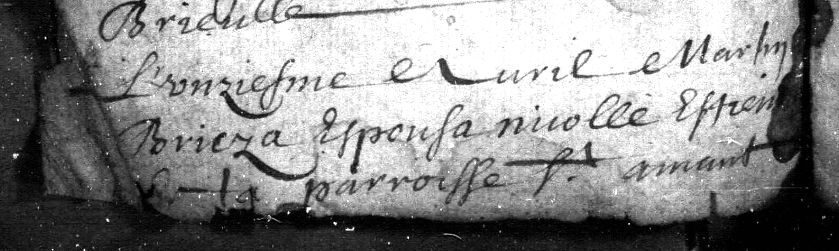 Brieulle
L'onziesme Avril Martin
Brieza Espousa nicolle Estien
de la parroisse St. amant